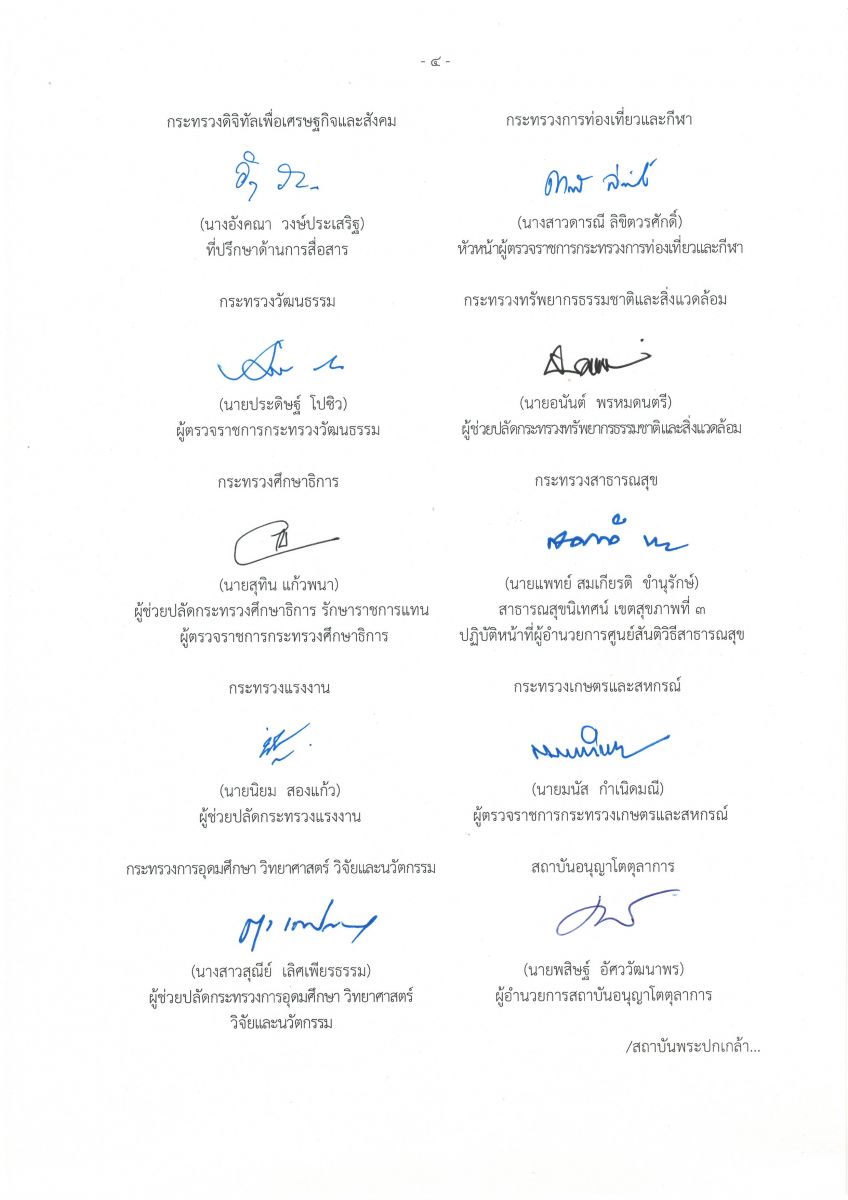 - ๔ -
กระทรวงดิจิทัลเพื่อเศรษฐกิจและสังคม
(นางอังคณา วงษ์ประเสริฐ)
ที่ปรึกษาด้านการสื่อสาร
กระทรวงการท่องเที่ยวและกีฬา
(นางสาวดารณี ลิขิตวรศักดิ์)
หัวหน้าผู้ตรวจราชการกระทรวงการท่องเที่ยวและกีฬา
กระทรวงวัฒนธรรม
(นายประดิษฐ์ โปซิว)
ผู้ตรวจราชการกระทรวงวัฒนธรรม
กระทรวงทรัพยากรธรรมชาติและสิ่งแวดล้อม
(นายอนันต์ พรหมดนตรี)
ผู้ช่วยปลัดกระทรวงทรัพยากรธรรมชาติและสิ่งแวดล้อม
กระทรวงศึกษาธิการ
(นายสุทิน แก้วพนา)
ผู้ช่วยปลัดกระทรวงศึกษาธิการ รักษาราชการแทน
ผู้ตรวจราชการกระทรวงศึกษาธิการ
กระทรวงสาธารณสุข
(นายแพทย์ สมเกียรติ ขำนุรักษ์)
สาธารณสุขนิเทศน์ เขตสุขภาพที่ ๓
ปฏิบัติหน้าที่ผู้อำนวยการศูนย์สันติวิธีสาธารณสุข
กระทรวงแรงงาน
(นายนิยม สองแก้ว)
ผู้ช่วยปลัดกระทรวงแรงงาน
กระทรวงเกษตรและสหกรณ์
(นายมนัส กำเนิดมณี)
ผู้ตรวจราชการกระทรวงเกษตรและสหกรณ์
กระทรวงการอุดมศึกษา วิทยาศาสตร์ วิจัยและนวัตกรรม
(นางสาวสุณีย์ เลิศเพียรธรรม)
ผู้ช่วยปลัดกระทรวงการอุดมศึกษา วิทยาศาสตร์
วิจัยและนวัตกรรม
สถาบันอนุญาโตตุลาการ
(นายพสิษฐ์ อัศววัฒนาพร)
ผู้อำนวยการสถาบันอนุญาโตตุลาการ
/สถาบันพระปกเกล้า...